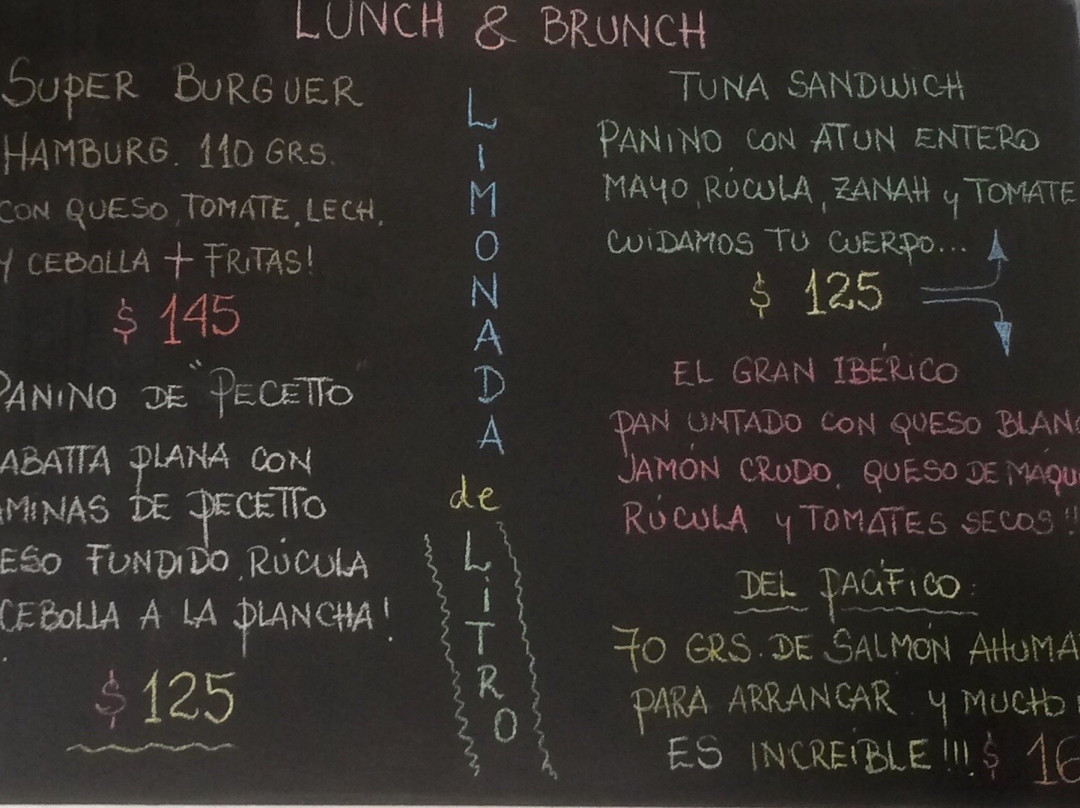 LUNCH & BRUNCH
SUPER BURGUER
HAMBURG. 110 GRS.
CON QUESO, TOMATE, LECH,
Y CEBOLLA + FRITAS!
$ 145
PANINO DE "PECETTO"
ABATTA PLANA CON
MINAS DE PECETTO
ESO FUNDIDO, RÚCULA
CEBOLLA A LA PLANCHA!
$ 125
LIMONADA
de
LiTRO
TUNA SANDWICH
PANINO CON ATUN ENTERO
MAYO, RÚCULA, ZANAH y TOMATE
CUIDAMOS TU CUERPO...
$ 125
EL GRAN IBÉRICO
PAN UNTADO CON QUESO BLAN
JAMÓN CRUDO, QUESO DE MÁQU
RÚCULA y TOMATES SECOS!!
DEL PACÍFICO:
70 GRS. DE SALMÓN AHUMA
PARA ARRANCAR. y MUCHO
ES INCREÍBLE!!! $ 16